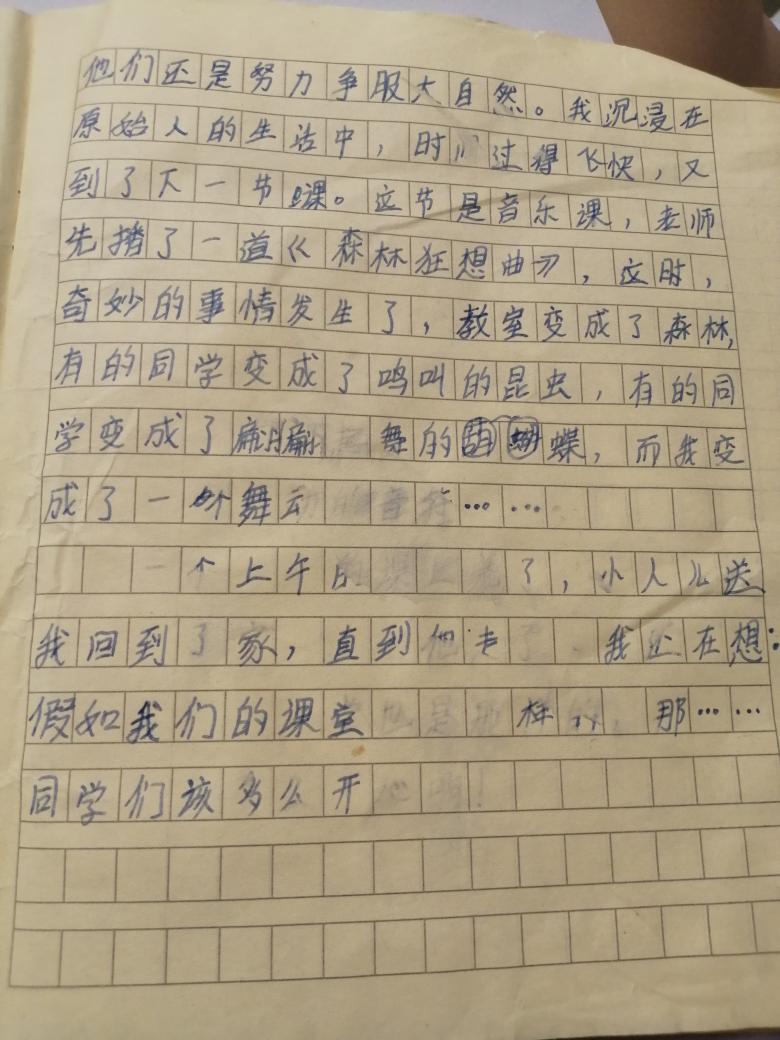 他们还是努力争服大自然。我沉浸在
原始人的生活中，时 过得飞快，又
到了下一节课。这节是音乐课，老师
先播了一道《森林狂想曲》，这时，
奇妙的事情发生了，教室变成了森林，
有的同学变成了鸣叫的昆虫，有的同
学变成了 舞的蝴蝶，而我变
成了一个舞动的音符……
一个上午的课 了，小人儿送
我回到了家，直到他走了，我还在想：
假如我们的课堂 是那样的，那……
同学们该多么开心啊！